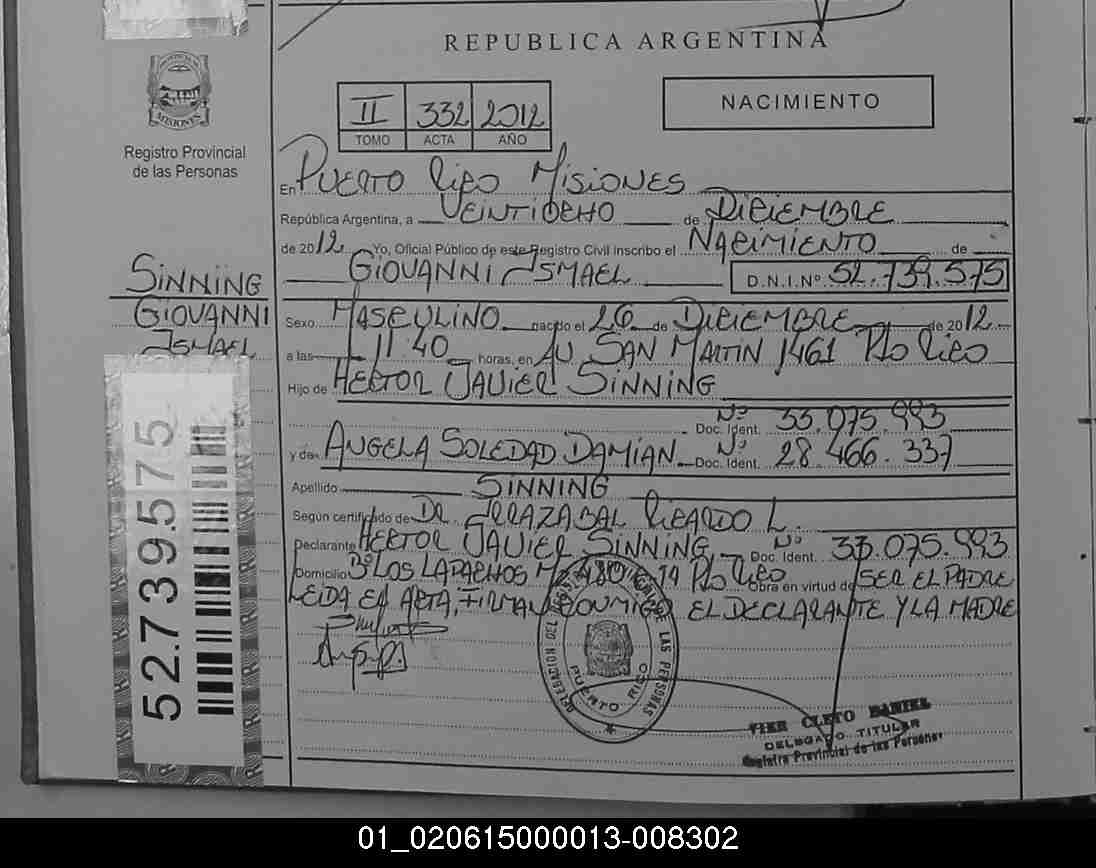 REPUBLICA ARGENTINA
MISIONES
Registro Provincial
de las Personas
II 332 2012
TOMO ACTA AÑO
NACIMIENTO
En PUERTO RICO MISIONES
República Argentina, a VEINTIOCHO de DICIEMBRE
de 2012 Yo, Oficial Público de este Registro Civil inscribo el NACIMIENTO de
GIOVANNI ISMAEL D.N.I.Nº 52.739.575
SINNING
GIOVANNI
ISMAEL
Sexo MASCULINO nacido el 26 de DICIEMBRE de 2012
a las 11:40 horas, en AV. SAN MARTIN 1461 Pto RICO
Hijo de HECTOR JAVIER SINNING
Nº
Doc. Ident. 33.075.993
y de ANGELA SOLEDAD DAMIAN Nº Doc. Ident. 28.466.337
Apellido SINNING
Según certificado de DR. IRRAZABAL RICARDO L.
Declarante HECTOR JAVIER SINNING Nº Doc. Ident. 33.075.993
Domicilio Bº LOS LAPACHOS Pto RICO Obra en virtud de SER EL PADRE
LEIDA EL ACTA, FIRMAN CONMIGO EL DECLARANTE Y LA MADRE
52.739.575
DELEGACION DEL REGISTRO PROVINCIAL DE LAS PERSONAS
PUERTO RICO
CLETO DANIEL
DELEGADO TITULAR
Registro Provincial de las Personas
01_020615000013-008302